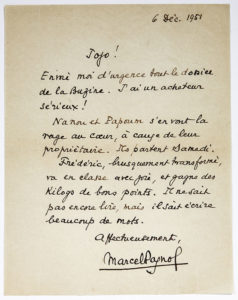 6 Déc. 1951
Jojo !
Envoie moi d'urgence tout le dossier
de la Buzine. J'ai un acheteur
sérieux !
Nanou et Papoum s'en vont la
rage au cœur, à cause de leur
propriétaire. Ils partent Samedi.
Frédéric, brusquement transformé,
va en classe avec joie, et gagne des
Kilogs de bons points. Il ne sait
pas encore lire, mais il sait écrire
beaucoup de mots.
Affectueusement,
Marcel Pagnol